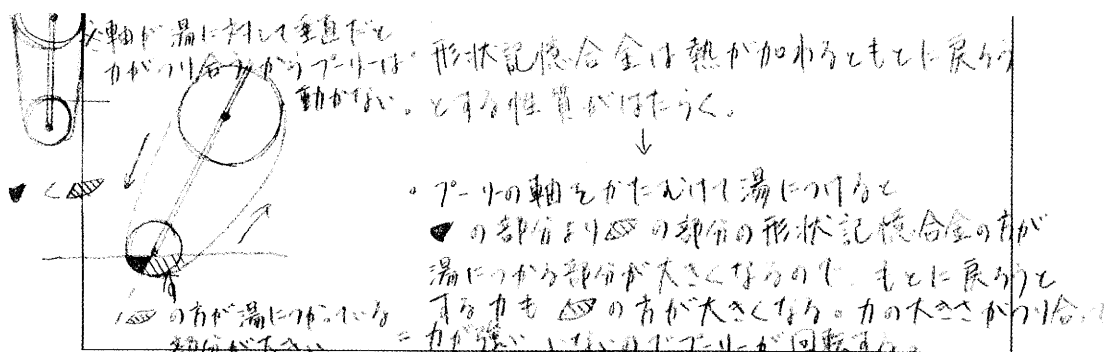 軸が湯に対して垂直だと
力がつり合うからプーリーは
動かない。
・形状記憶合金は熱が加わるともとに戻ろう
とする性質がはたらく。
↓
・プーリーの軸をかたむけて湯につけると
の部分より の部分の形状記憶合金の方が
湯につかる部分が大きくなるので、もとに戻ろうと
する力も の方が大きくなる。力の大きさがつり合って
いないのでプーリーが回転する。
<
の方が湯につかっている
部分が大きい
= 力が強い